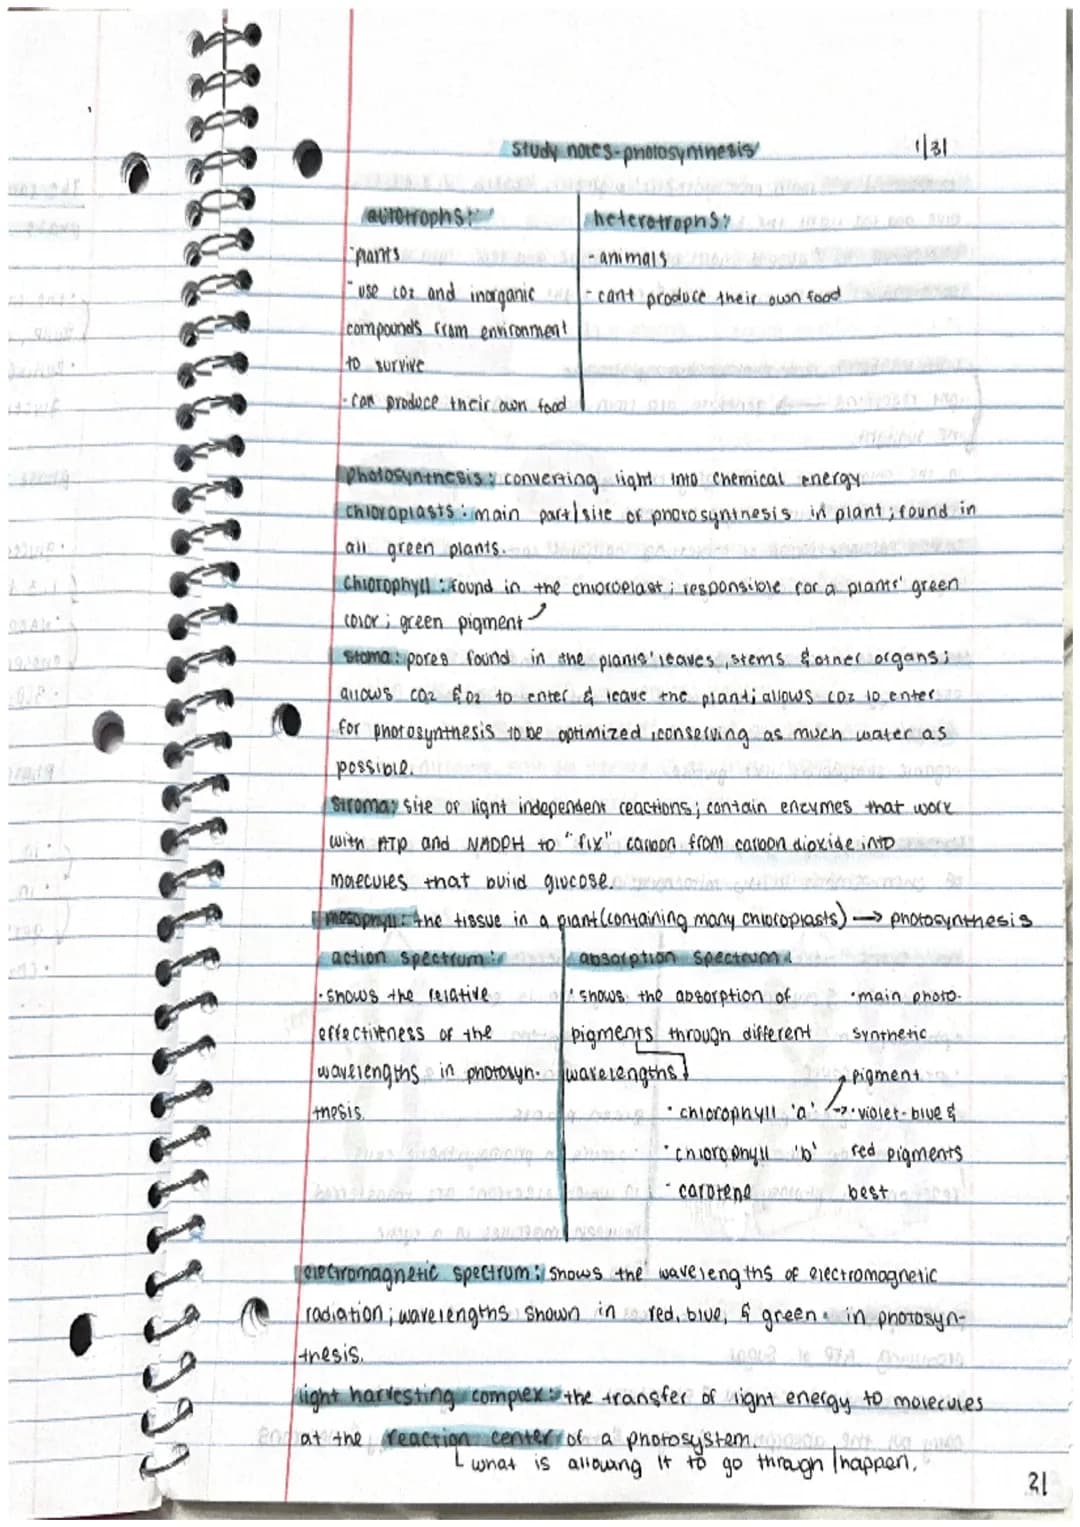 study notes-photosynthesis
1/31
autotrophs:
-plants
-use CO2 and inorganic
compounds from environment
to survive
-can produce their own food
heterotrophs:
-animals
-cant produce their own food
photosynthesis: converting light into chemical energy
chloroplasts: main part/site of photosynthesis in plant; found in
all green plants.
Chlorophyll: found in the chloroplast; responsible for a plants' green
color; green pigment
stoma: pores found in the plants' leaves, stems & other organs;
allows CO2 & O2 to enter & leave the plant; allows CO2 to enter
for photosynthesis to be optimized; conserving as much water as
possible.
Stroma: site of light independent reactions; contain enzymes that work
with ATP and NADPH to "fix" carbon from carbon dioxide into
molecules that build glucose.
mesophyll: the tissue in a plant (containing many chloroplasts) → photosynthesis
action spectrum:
•shows the relative
effectiveness of the
wavelengths in photosyn-
thesis.
absorption spectrum:
•shows the absorption of
pigments through different
wavelengths
•chlorophyll 'a'
•chlorophyll 'b'
•carotene
•main photo-
synthetic
pigment
•violet-blue &
red pigments
best
electromagnetic spectrum: shows the wavelengths of electromagnetic
radiation; wavelengths shown in red, blue, & green in photosyn-
thesis.
light harvesting complex: the transfer of light energy to molecules
at the reaction center of a photosystem.
what is allowing it to go through/happen.
31